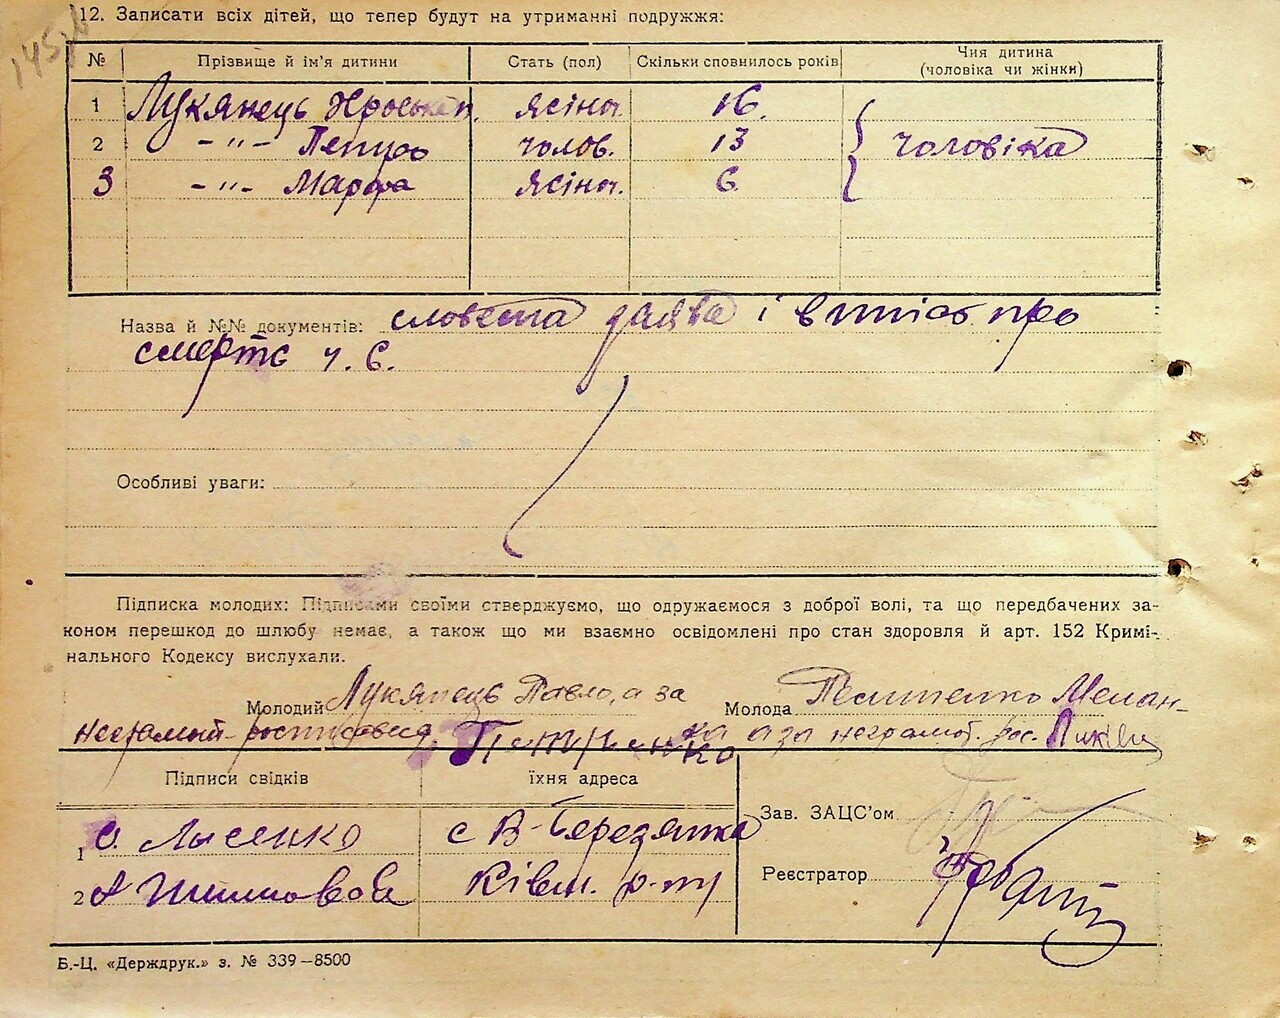 145зв
12. Записати всіх дітей, що тепер будут на утриманні подружжя:
№ Прізвище й ім'я дитини Стать (пол) Скільки сповнилось років Чия дитина (чоловіка чи жінки)
1 Лукянець жіноч. 16.
2 -"- Петро чолов. 13 чоловіка
3 -"- Марфа жіноч. 6
Назва й №№ документів: словесна заява і випис про
смерть ч. 6.
Особливі уваги:
Підписка молодих: Підписами своїми стверджуємо, що одружаємося з доброї волі, та що передбачених за-
коном перешкод до шлюбу немає, а також що ми взаємно освідомлені про стан здоровля й арт. 152 Кримі-
нального Кодексу вислухали.
Молодий Лукянець Павло, а за Молода Мелан-
неграмотн. росписався Петренко ка а за неграмот. рос.
Підписи свідків їхня адреса
Зав. ЗАЦС'ом
1 О. Лысенко с В-Бередянка
Реєстратор
2
Б.-Ц. «Держдрук.» з. № 339—8500